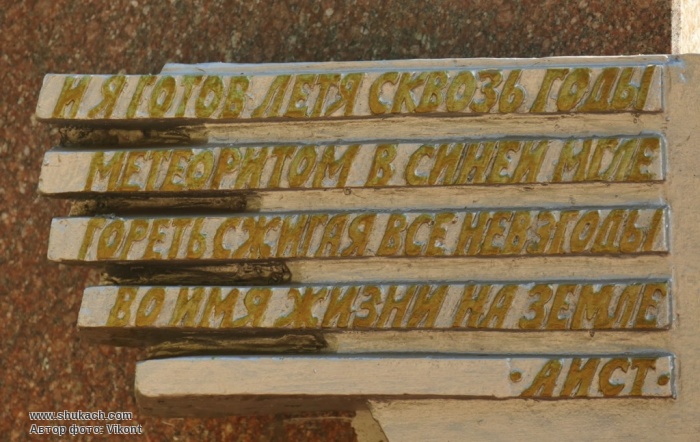 И Я ГОТОВ ЛЕТЯ СКВОЗЬ ГОДЫ
МЕТЕОРИТОМ В СИНЕЙ МГЛЕ
ГОРЕТЬ СЖИГАЯ ВСЕ НЕВЗГОДЫ
ВО ИМЯ ЖИЗНИ НА ЗЕМЛЕ
• АИСТ •
www.shukach.com
Автор фото: Vikont